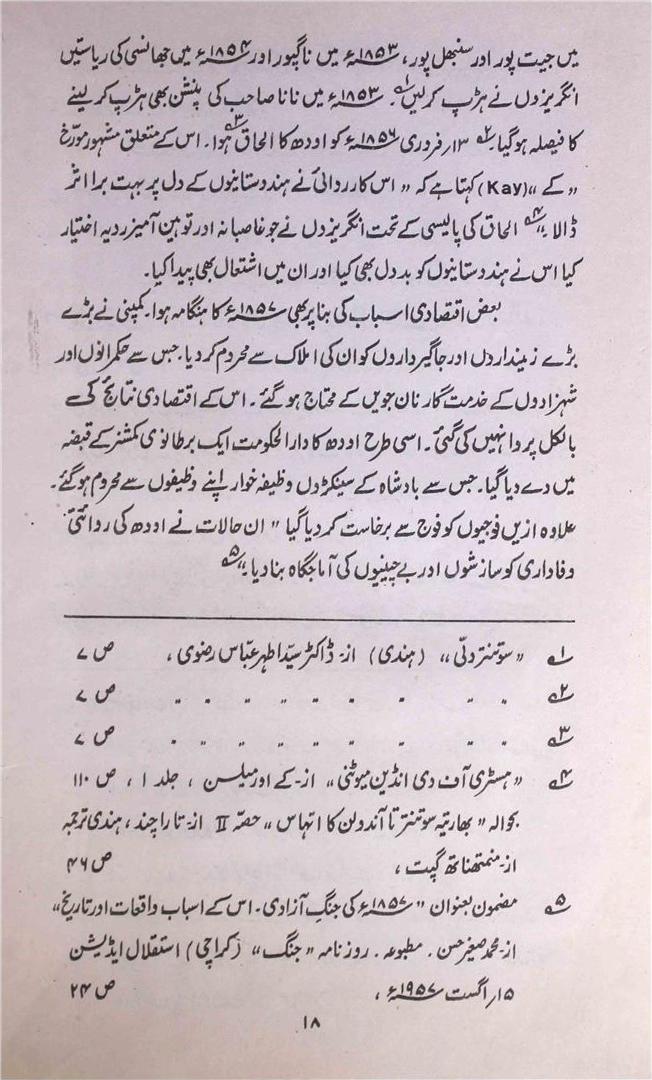 میں جیت پور اور سنبھل پور، ۱۸۵۳ء میں ناگپور اور ۱۸۵۴ء میں جھانسی کی ریاستیں
انگریزوں نے ہڑپ کر لیں۔۱؎ ۱۸۵۳ء میں نانا صاحب کی پنشن بھی ہڑپ کر لینے
کا فیصلہ ہو گیا۔۲؎ ۱۳؍ فروری ۱۸۵۶ء کو اودھ کا الحاق ہوا۔۳؎ اس کے متعلق مشہور مورّخ
"کے" (Kay) کہتا ہے کہ "اس کارروائی نے ہندوستانیوں کے دل پر بہت برا اثر
ڈالا۔"۴؎ الحاق کی پالیسی کے تحت انگریزوں نے جو غاصبانہ اور توہین آمیز رویہ اختیار
کیا اس نے ہندوستانیوں کو بد دل بھی کیا اور ان میں اشتعال بھی پیدا کیا۔
بعض اقتصادی اسباب کی بنا پر بھی ۱۸۵۷ء کا ہنگامہ ہوا۔ کمپنی نے بڑے
بڑے زمینداروں اور جاگیرداروں کو ان کی املاک سے محروم کر دیا۔ جس سے حکمرانوں اور
شہزادوں کے خدمت گار نان جویں کے محتاج ہو گئے۔ اس کے اقتصادی نتائج کی سے
بالکل پروا نہیں کی گئی۔ اسی طرح اودھ کا دارالحکومت ایک برطانوی کمشنر کے قبضہ
میں دے دیا گیا۔ جس سے بادشاہ کے سینکڑوں وظیفہ خوار اپنے وظیفوں سے محروم ہو گئے۔
علاوہ ازیں فوجیوں کو فوج سے برخاست کر دیا گیا "ان حالات نے اودھ کی روائتی
وفاداری کو سازشوں اور بے چینیوں کی آماجگاہ بنا دیا۔"۵؎
۱؎ "سوتنتر دلّی" (ہندی) از۔ ڈاکٹر سیّد اطہر عبّاس رضوی، ص ۷
۲؎ " " " " " " " " ص ۷
۳؎ " " " " " " " " ص ۷
۴؎ "ہسٹری آف دی انڈین میوٹنی" از۔ کے اور میلسن، جلد ۱، ص ۱۱۰
بحوالہ "بھارتیہ سوتنترتا آندولن کا اتہاس" حصّہ II از۔ تارا چند، ہندی ترجمہ
از۔ منمتھناتھ گپت، ص ۴۶
۵؎ مضمون بعنوان "۱۸۵۷ء کی جنگِ آزادی۔ اس کے اسباب واقعات اور تاریخ"
از۔ محمد صغیر حسن۔ مطبوعہ۔ روزنامہ "جنگ" (کراچی) استقلال ایڈیشن
۱۵؍ اگست ۱۹۵۷ء، ص ۲۴
۱۸